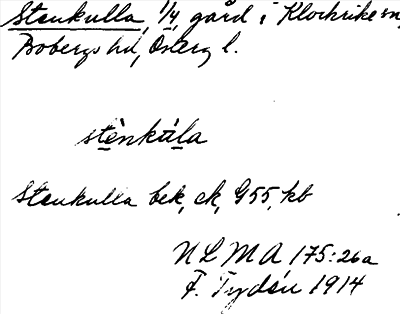 Stenkulla, 1/4, gård i Klockrike sn,
Bobergs hd, Österg l.
stènkùla
Stenkulla bek, ck, G55, kb
NLMA 175:26a
F. Tydén 1914